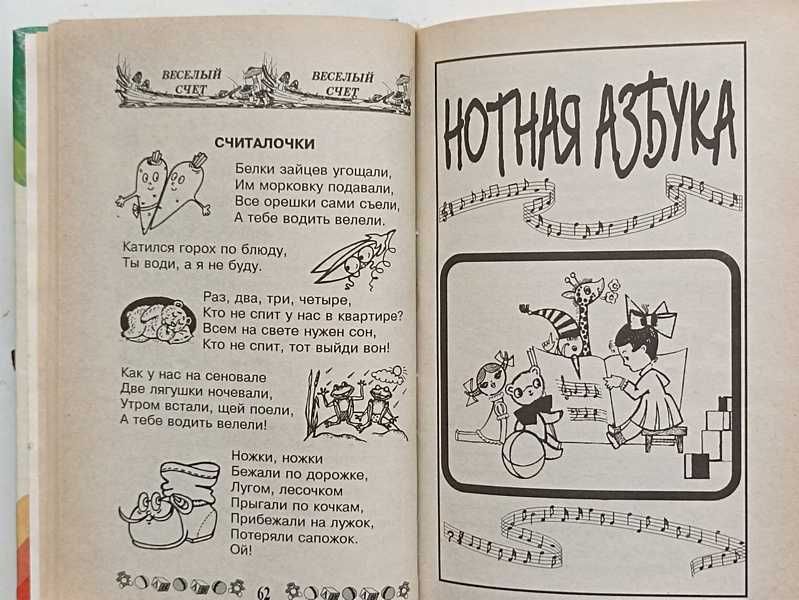 ВЕСЕЛЫЙ
СЧЕТ
ВЕСЕЛЫЙ
СЧЕТ
СЧИТАЛОЧКИ
Белки зайцев угощали,
Им морковку подавали,
Все орешки сами съели,
А тебе водить велели.
Катился горох по блюду,
Ты води, а я не буду.
Раз, два, три, четыре,
Кто не спит у нас в квартире?
Всем на свете нужен сон,
Кто не спит, тот выйди вон!
Как у нас на сеновале
Две лягушки ночевали,
Утром встали, щей поели,
А тебе водить велели!
Ножки, ножки
Бежали по дорожке,
Лугом, лесочком
Прыгали по кочкам,
Прибежали на лужок,
Потеряли сапожок.
Ой!
62
НОТНАЯ АЗБУКА